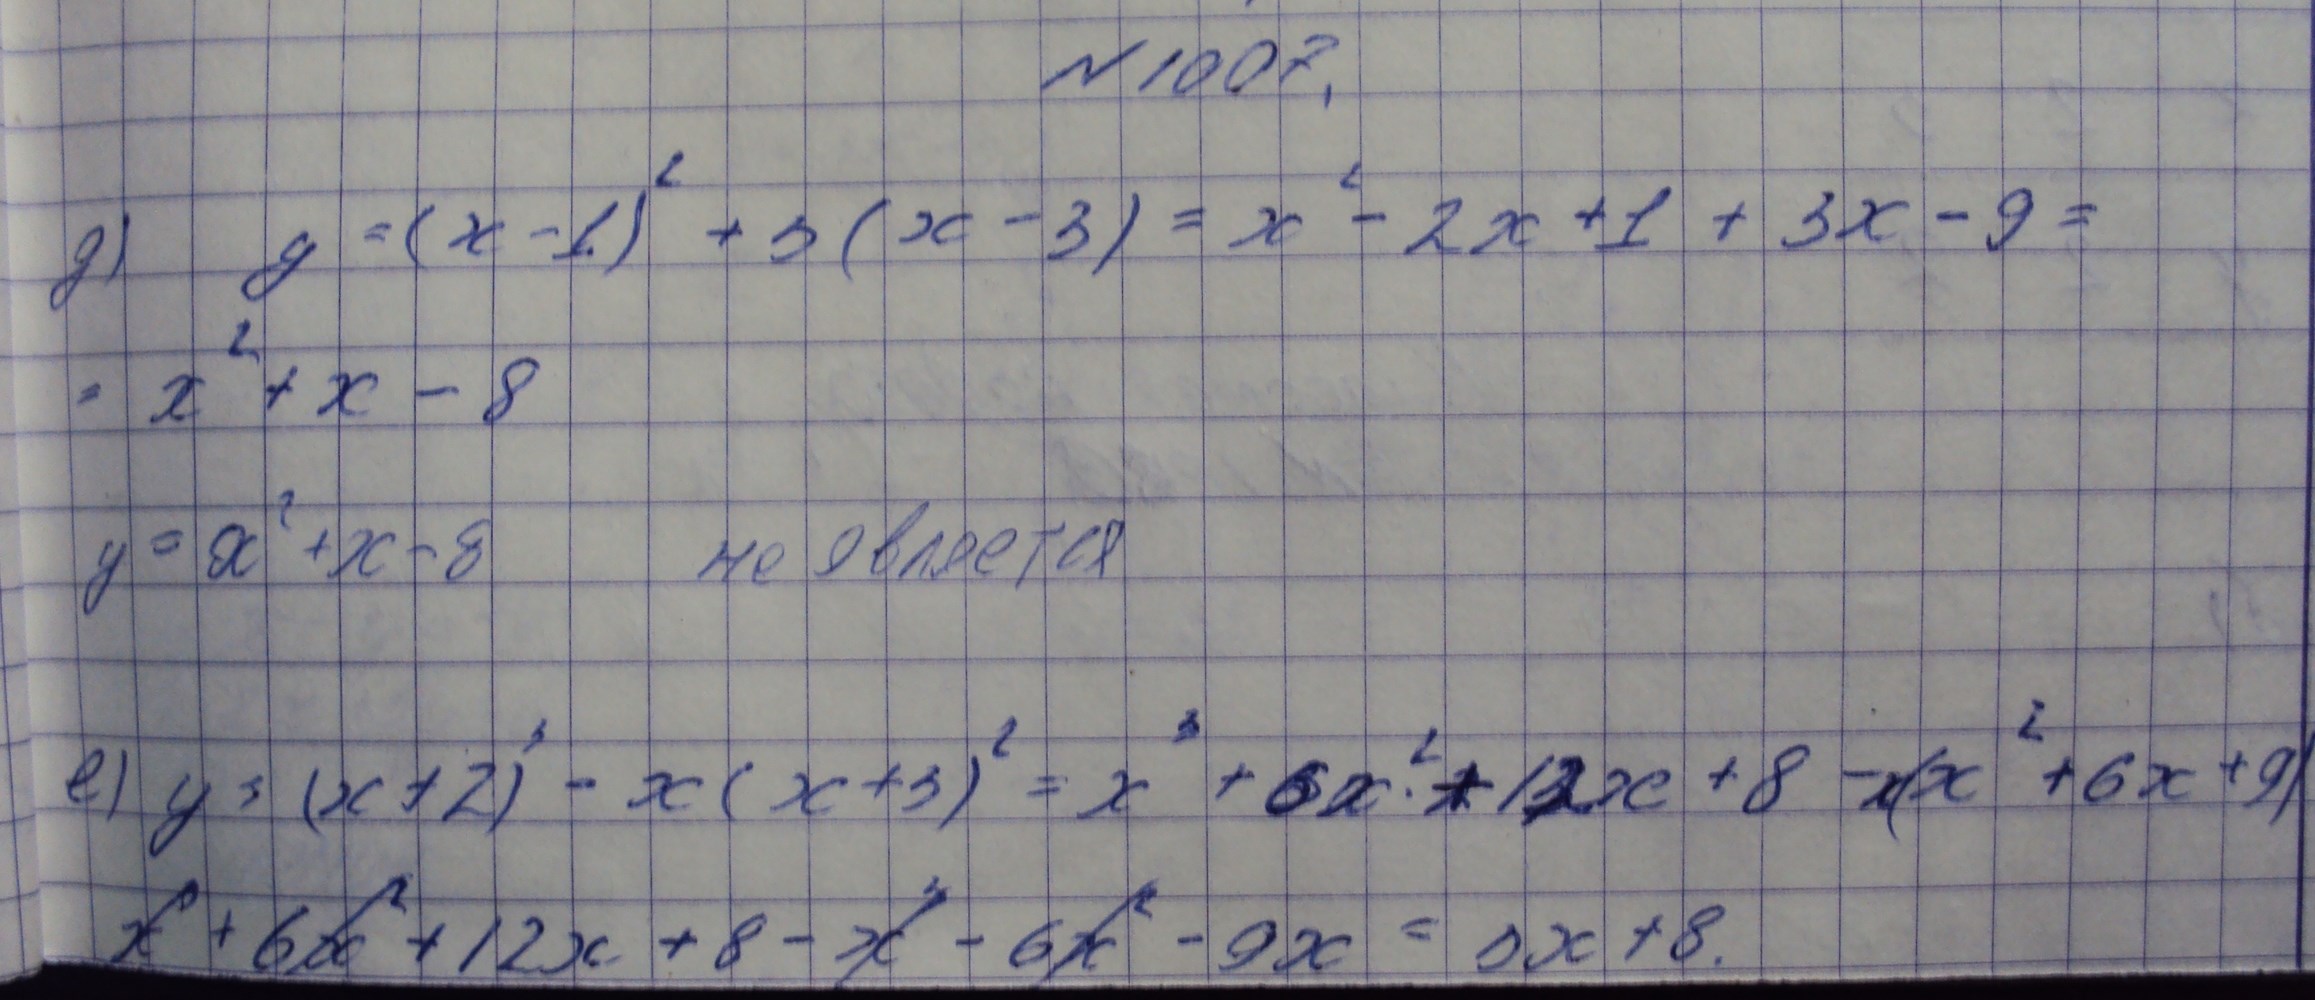 №1007.
д) y = (x-1)² + 3(x-3) = x² - 2x + 1 + 3x - 9 =
= x² + x - 8
y = x² + x - 8 не является
е) y = (x+2)³ - x(x+3)² = x³ + 6x² + 12x + 8 - x(x² + 6x + 9)
x³ + 6x² + 12x + 8 - x³ - 6x² - 9x = 3x + 8.